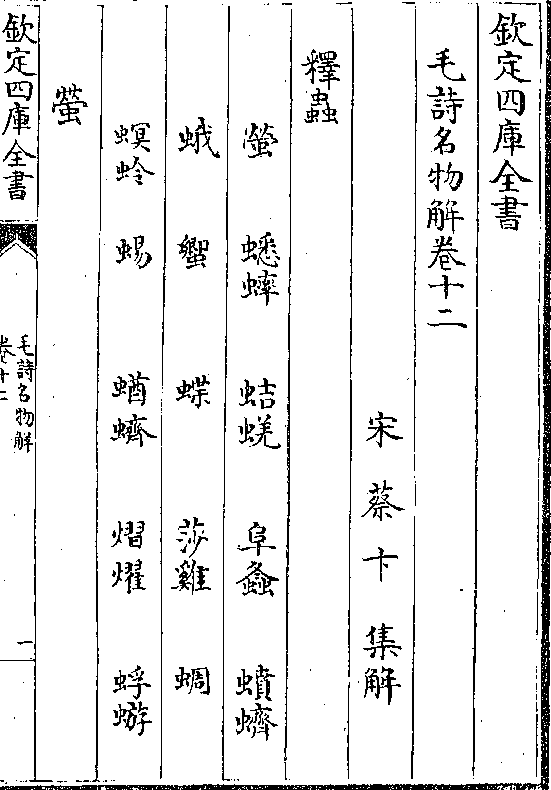 欽定四庫全書
毛詩名物解卷十二
宋 蔡 卞 集解
釋蟲
螢 蟋蟀 蛣蜣 阜螽 蟦蠐
蛾 蠁 蝶 莎雞 蜩
螟蛉 蜴 蝤蠐 熠燿 蜉蝣
螢
欽定四庫全書
毛詩名物解
卷十二
一